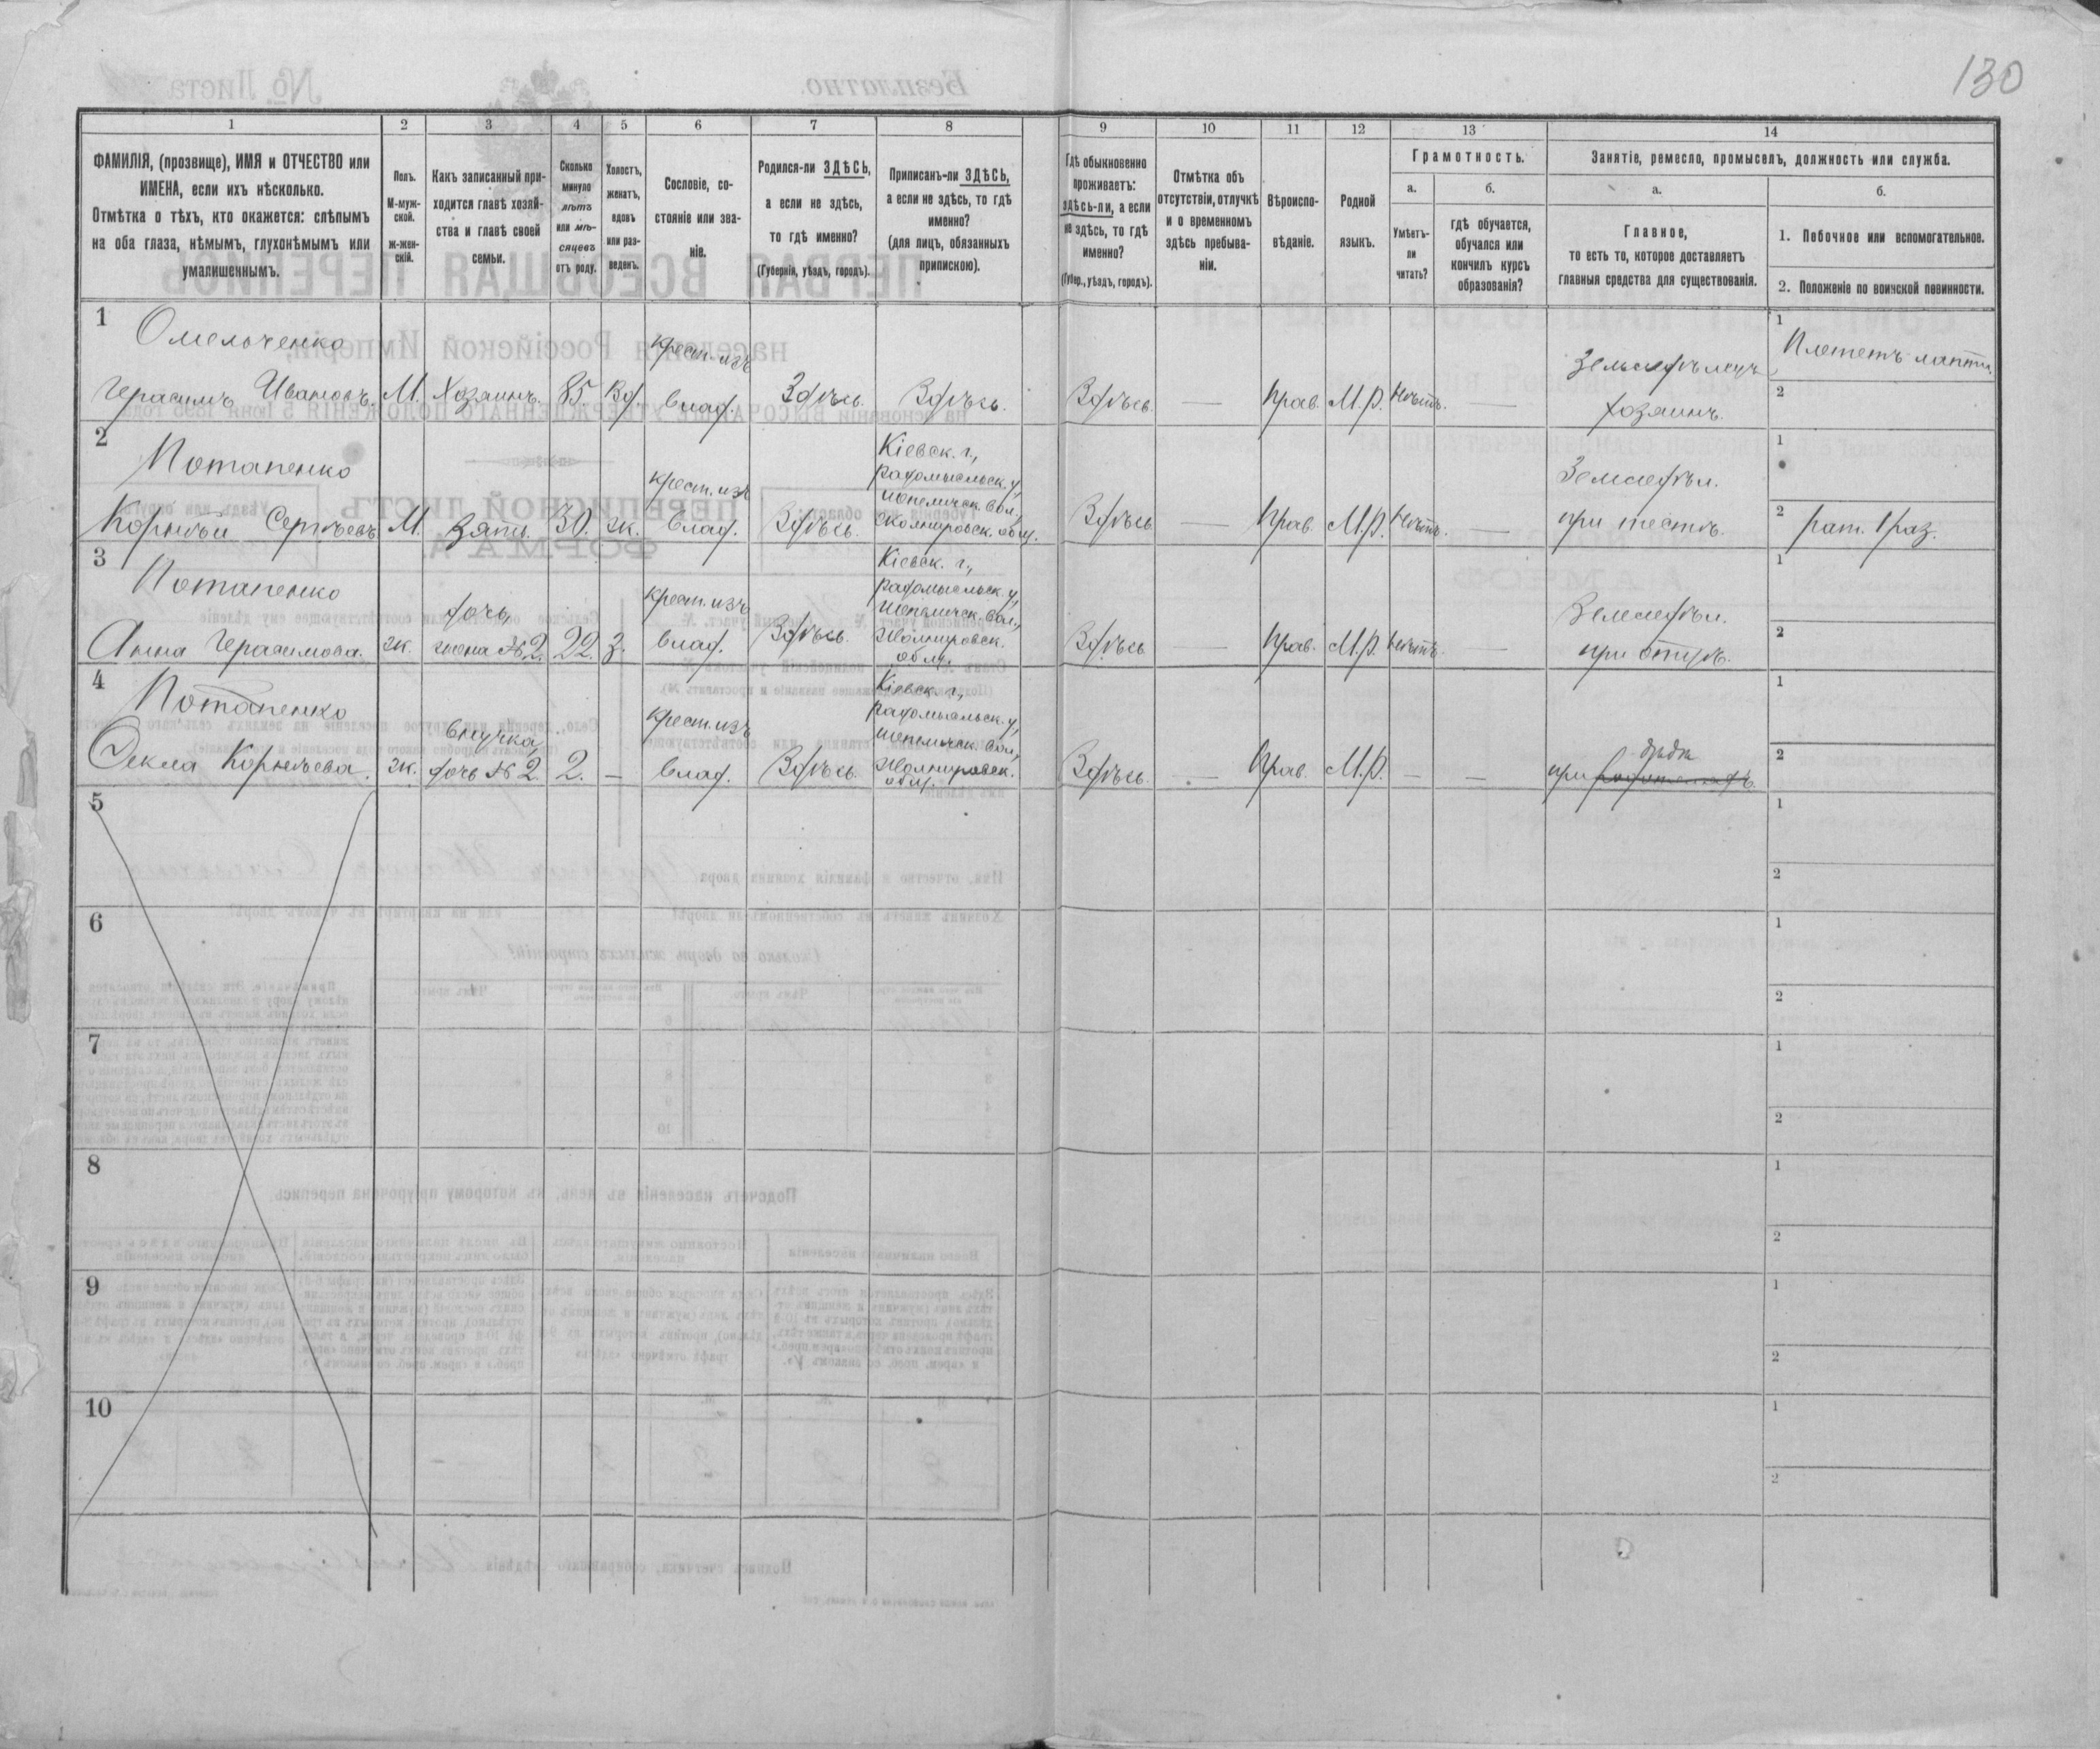 130
1
2
3
4
5
6
7
8
9
10
11
12
13
14
ФАМИЛІЯ, (прозвище), ИМЯ и ОТЧЕСТВО или
ИМЕНА, если ихъ нѣсколько.
Отмѣтка о тѣхъ, кто окажется: слѣпымъ
на оба глаза, нѣмымъ, глухонѣмымъ или
умалишеннымъ.
Полъ.
М-муж-
ской.
ж-жен-
скій.
Какъ записанный при-
ходится главѣ хозяй-
ства и главѣ своей
семьи.
Сколько
минуло
лѣтъ
или мѣ-
сяцевъ
отъ роду.
Холостъ,
женатъ,
вдовъ
или раз-
веденъ.
Сословіе, со-
стояніе или зва-
ніе.
Родился-ли ЗДѢСЬ,
а если не здѣсь,
то гдѣ именно?
(Губернія, уѣздъ, городъ).
Приписанъ-ли ЗДѢСЬ,
а если не здѣсь, то гдѣ
именно?
(для лицъ, обязанныхъ
припискою).
Гдѣ обыкновенно
проживаетъ:
здѣсь-ли, а если
не здѣсь, то гдѣ
именно?
(Губер., уѣздъ, городъ).
Отмѣтка объ
отсутствіи, отлучкѣ
и о временномъ
здѣсь пребыва-
ніи.
Вѣроиспо-
вѣданіе.
Родной
языкъ.
Грамотность.
а.
Умѣетъ-
ли
читать?
б.
гдѣ обучается,
обучался или
кончилъ курсъ
образованія?
Занятіе, ремесло, промыселъ, должность или служба.
а.
Главное,
то есть то, которое доставляетъ
главныя средства для существованія.
б.
1. Побочное или вспомогательное.
2. Положеніе по воинской повинности.
1
Омельченко
Герасимъ Ивановъ.
М.
Хозяинъ.
85.
Вд.
Крест. изъ
влад.
Здѣсь.
Здѣсь.
Здѣсь.
—
Прав.
М.Р.
Нѣтъ.
—
Земледѣлецъ
хозяинъ.
1
Плететъ лапти
2
2
Потапенко
Корнѣй Сергѣевъ
М.
Зять.
30.
ж.
Крест. изъ
влад.
Здѣсь.
Кіевск. г.,
Радомысльск. у.,
Шепеличск. вол.,
общ.
Здѣсь
—
Прав.
М.Р.
Нѣтъ.
—
Земледѣл.
при тестѣ.
1
2
рат. 1 раз.
3
Потапенко
Анна Герасимова.
ж.
дочь,
жена №2.
22.
з.
Крест. изъ
влад.
Здѣсь.
Кіевск. г.,
Радомысльск. у.,
Шепеличск. вол.,
общ.
Здѣсь
—
Прав.
М.Р.
Нѣтъ.
—
Земледѣл.
при отцѣ.
1
2
4
Потапенко
Фекла Корнѣева.
ж.
внучка,
дочь №2.
2.
—
Крест. изъ
влад.
Здѣсь.
Кіевск. г.,
Радомысльск. у.,
Шепеличск. вол.,
общ.
Здѣсь
—
Прав.
М.Р.
—
—
дѣдѣ
при
1
2
5
1
2
6
1
2
7
1
2
8
1
2
9
1
2
10
1
2